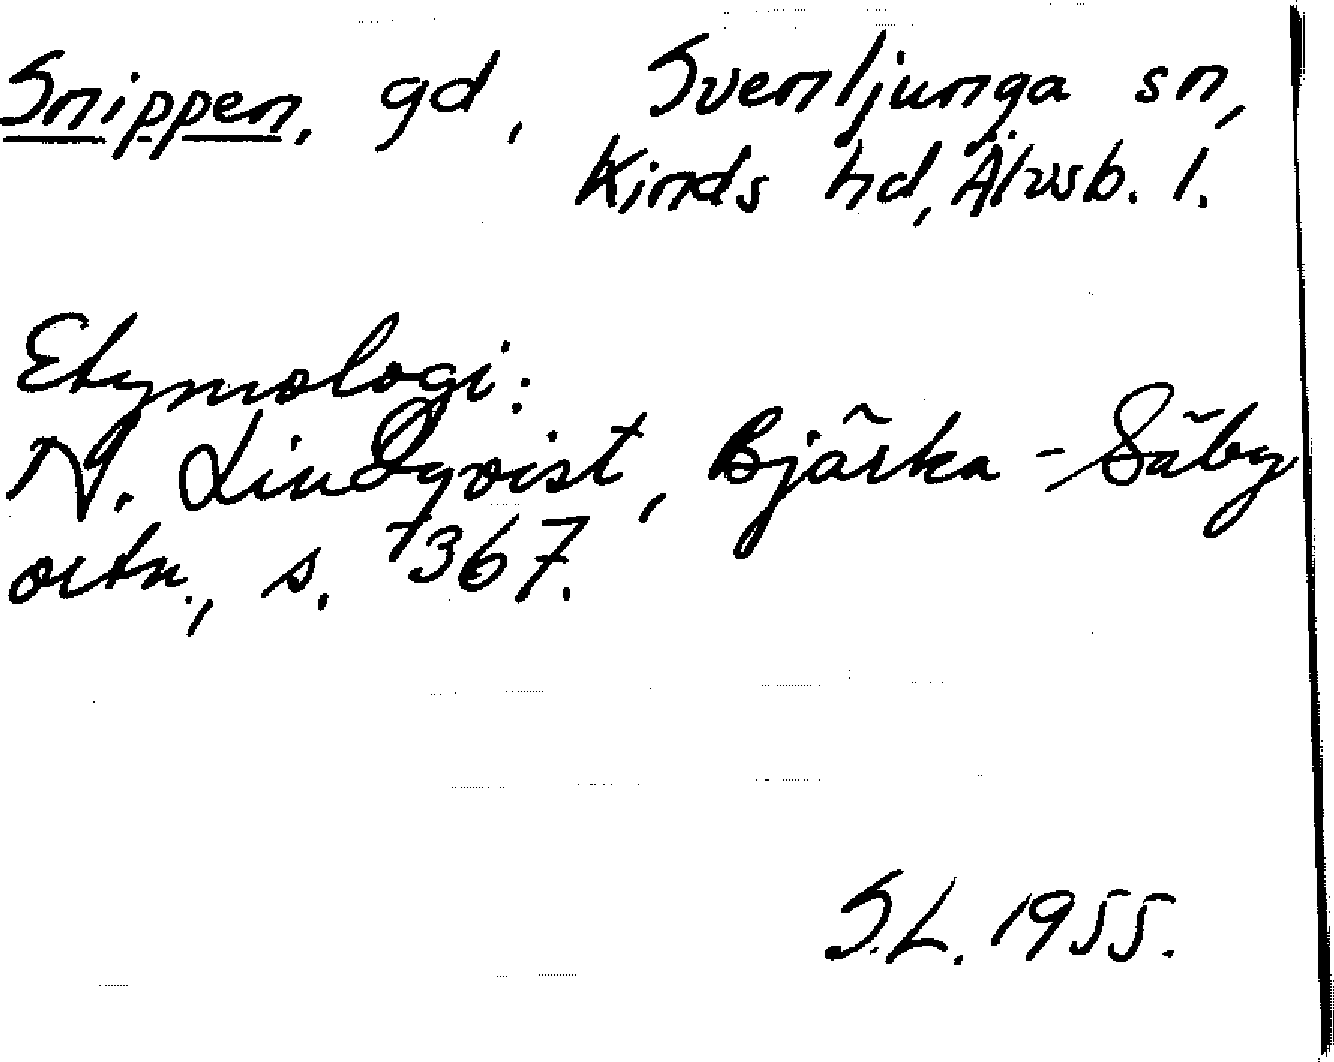 Snippen, gd, Svenljunga sn,
Kinds hd, Älvsb. l.
Etymologi:
N. Lindqvist, Bjärka-Säby
ortn., s. 367.
S.L. 1955.